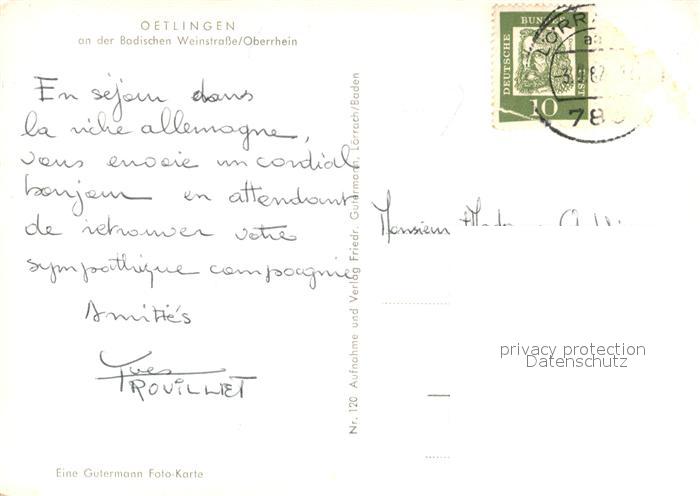 OETLINGEN
an der Badischen Weinstraße/Oberrhein
En séjour dans
la riche allemagne,
vous envoie un cordial
bonjour en attendant
de retrouver votre
sympathique compagnie
Amitiés
Yves
TROUILLET
Eine Gutermann Foto-Karte
Nr. 120 Aufnahme und Verlag Friedr. Gutermann, Lörrach/Baden
DEUTSCHE
BUNDES
POST
10
LÖRRA
78
Monsieur
privacy protection
Datenschutz